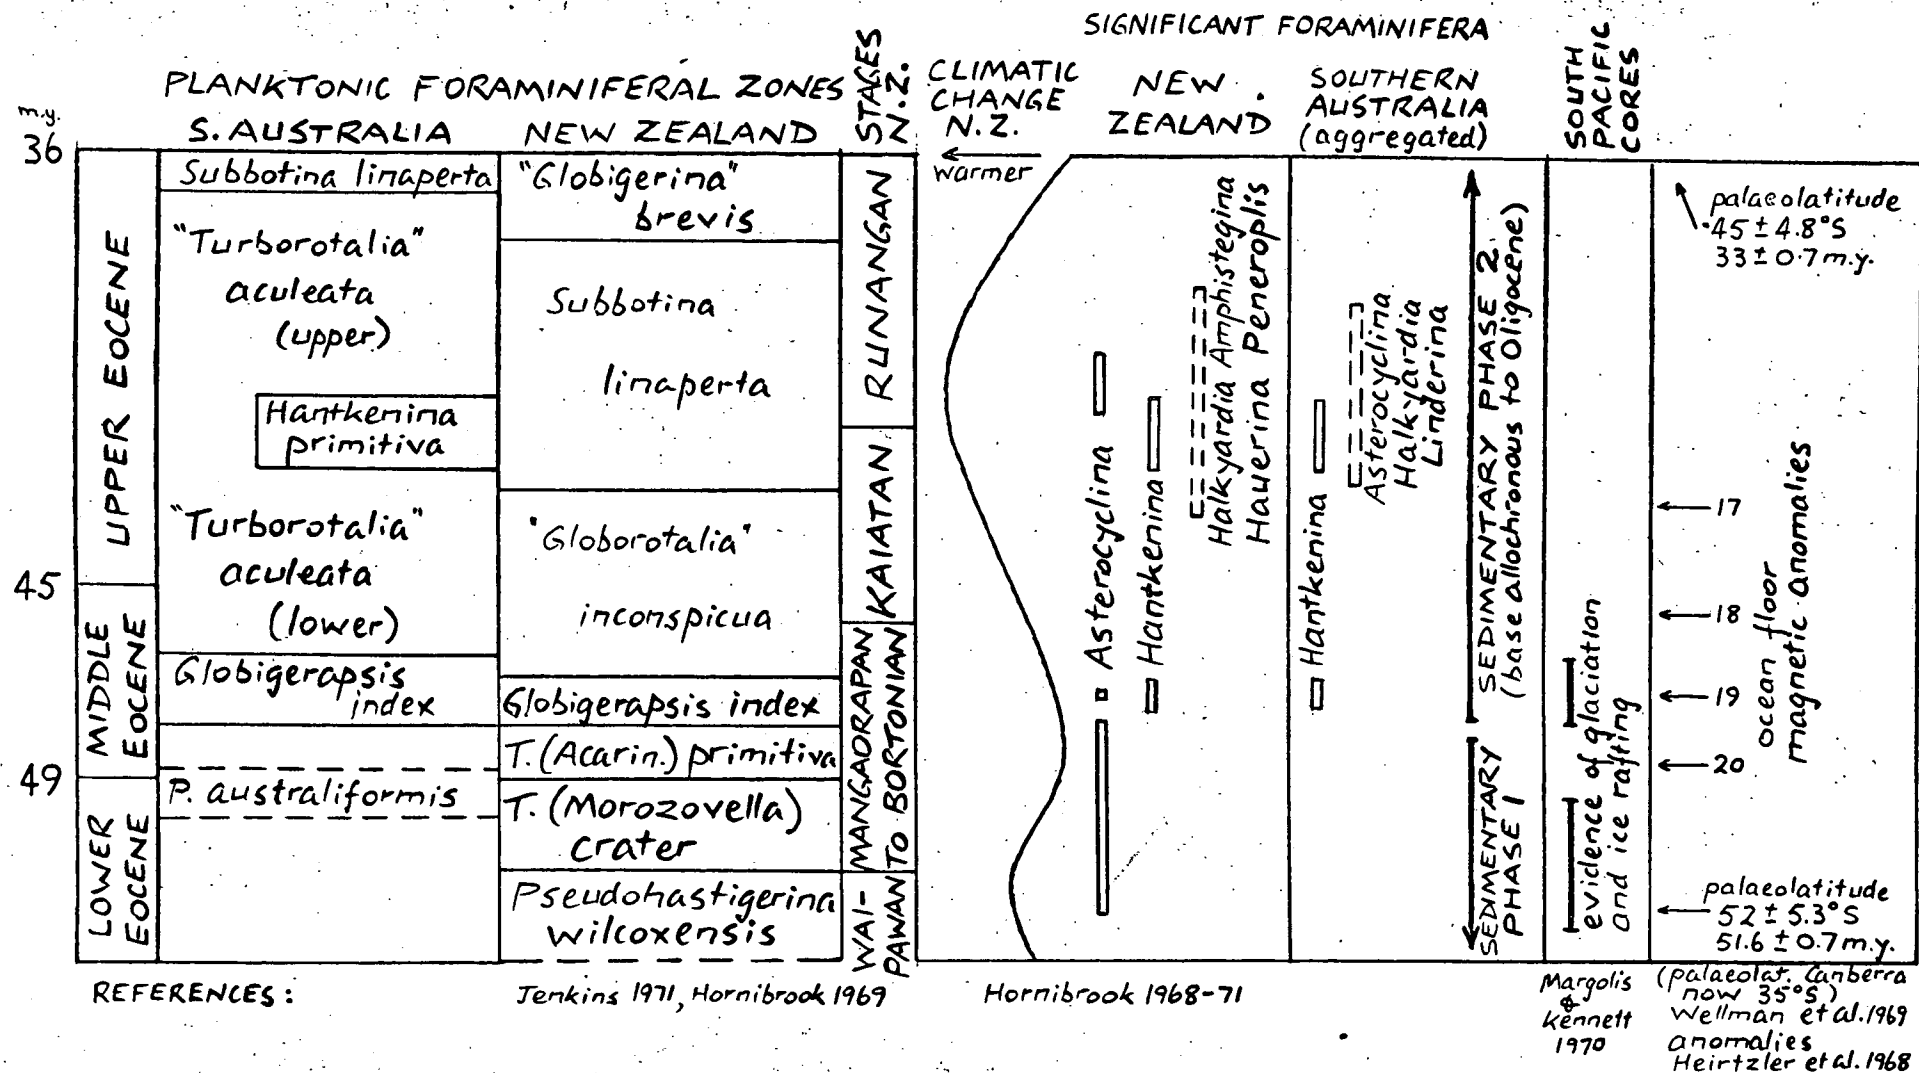 SIGNIFICANT FORAMINIFERA
PLANKTONIC FORAMINIFERAL ZONES
S. AUSTRALIA
NEW ZEALAND
STAGES
N.Z.
CLIMATIC
CHANGE
N.Z.
NEW
ZEALAND
SOUTHERN
AUSTRALIA
(aggregated)
SOUTH
PACIFIC
CORES
m.y.
36
45
49
UPPER EOCENE
MIDDLE
EOCENE
LOWER
EOCENE
Subbotina linaperta
"Turborotalia"
aculeata
(upper)
Hantkenina
primitiva
"Turborotalia"
aculeata
(lower)
Globigerapsis
index
P. australiformis
"Globigerina"
brevis
Subbotina
linaperta
"Globorotalia"
inconspicua
Globigerapsis index
T. (Acarin.) primitiva
T. (Morozovella)
crater
Pseudohastigerina
wilcoxensis
RUNANGAN
KAIATAN
MANGAORAPAN
TO BORTONIAN
WAI-
PAWAN
warmer
Asterocyclina
Hantkenina
Halkyardia Amphistegina
Hauerina Peneroplis
Hantkenina
Asterocyclina
Halkyardia
Linderina
SEDIMENTARY PHASE 2
(base allochronous to Oligocene)
SEDIMENTARY
PHASE 1
evidence of glaciation
and ice rafting
palaeolatitude
45 ± 4.8°S
33 ± 0.7 m.y.
17
18
19
20
ocean floor
magnetic anomalies
palaeolatitude
52 ± 5.3°S
51.6 ± 0.7 m.y.
REFERENCES:
Jenkins 1971, Hornibrook 1969
Hornibrook 1968-71
Margolis
&
Kennett
1970
(palaeolat. Canberra
now 35°S)
Wellman et al. 1969
anomalies
Heirtzler et al. 1968